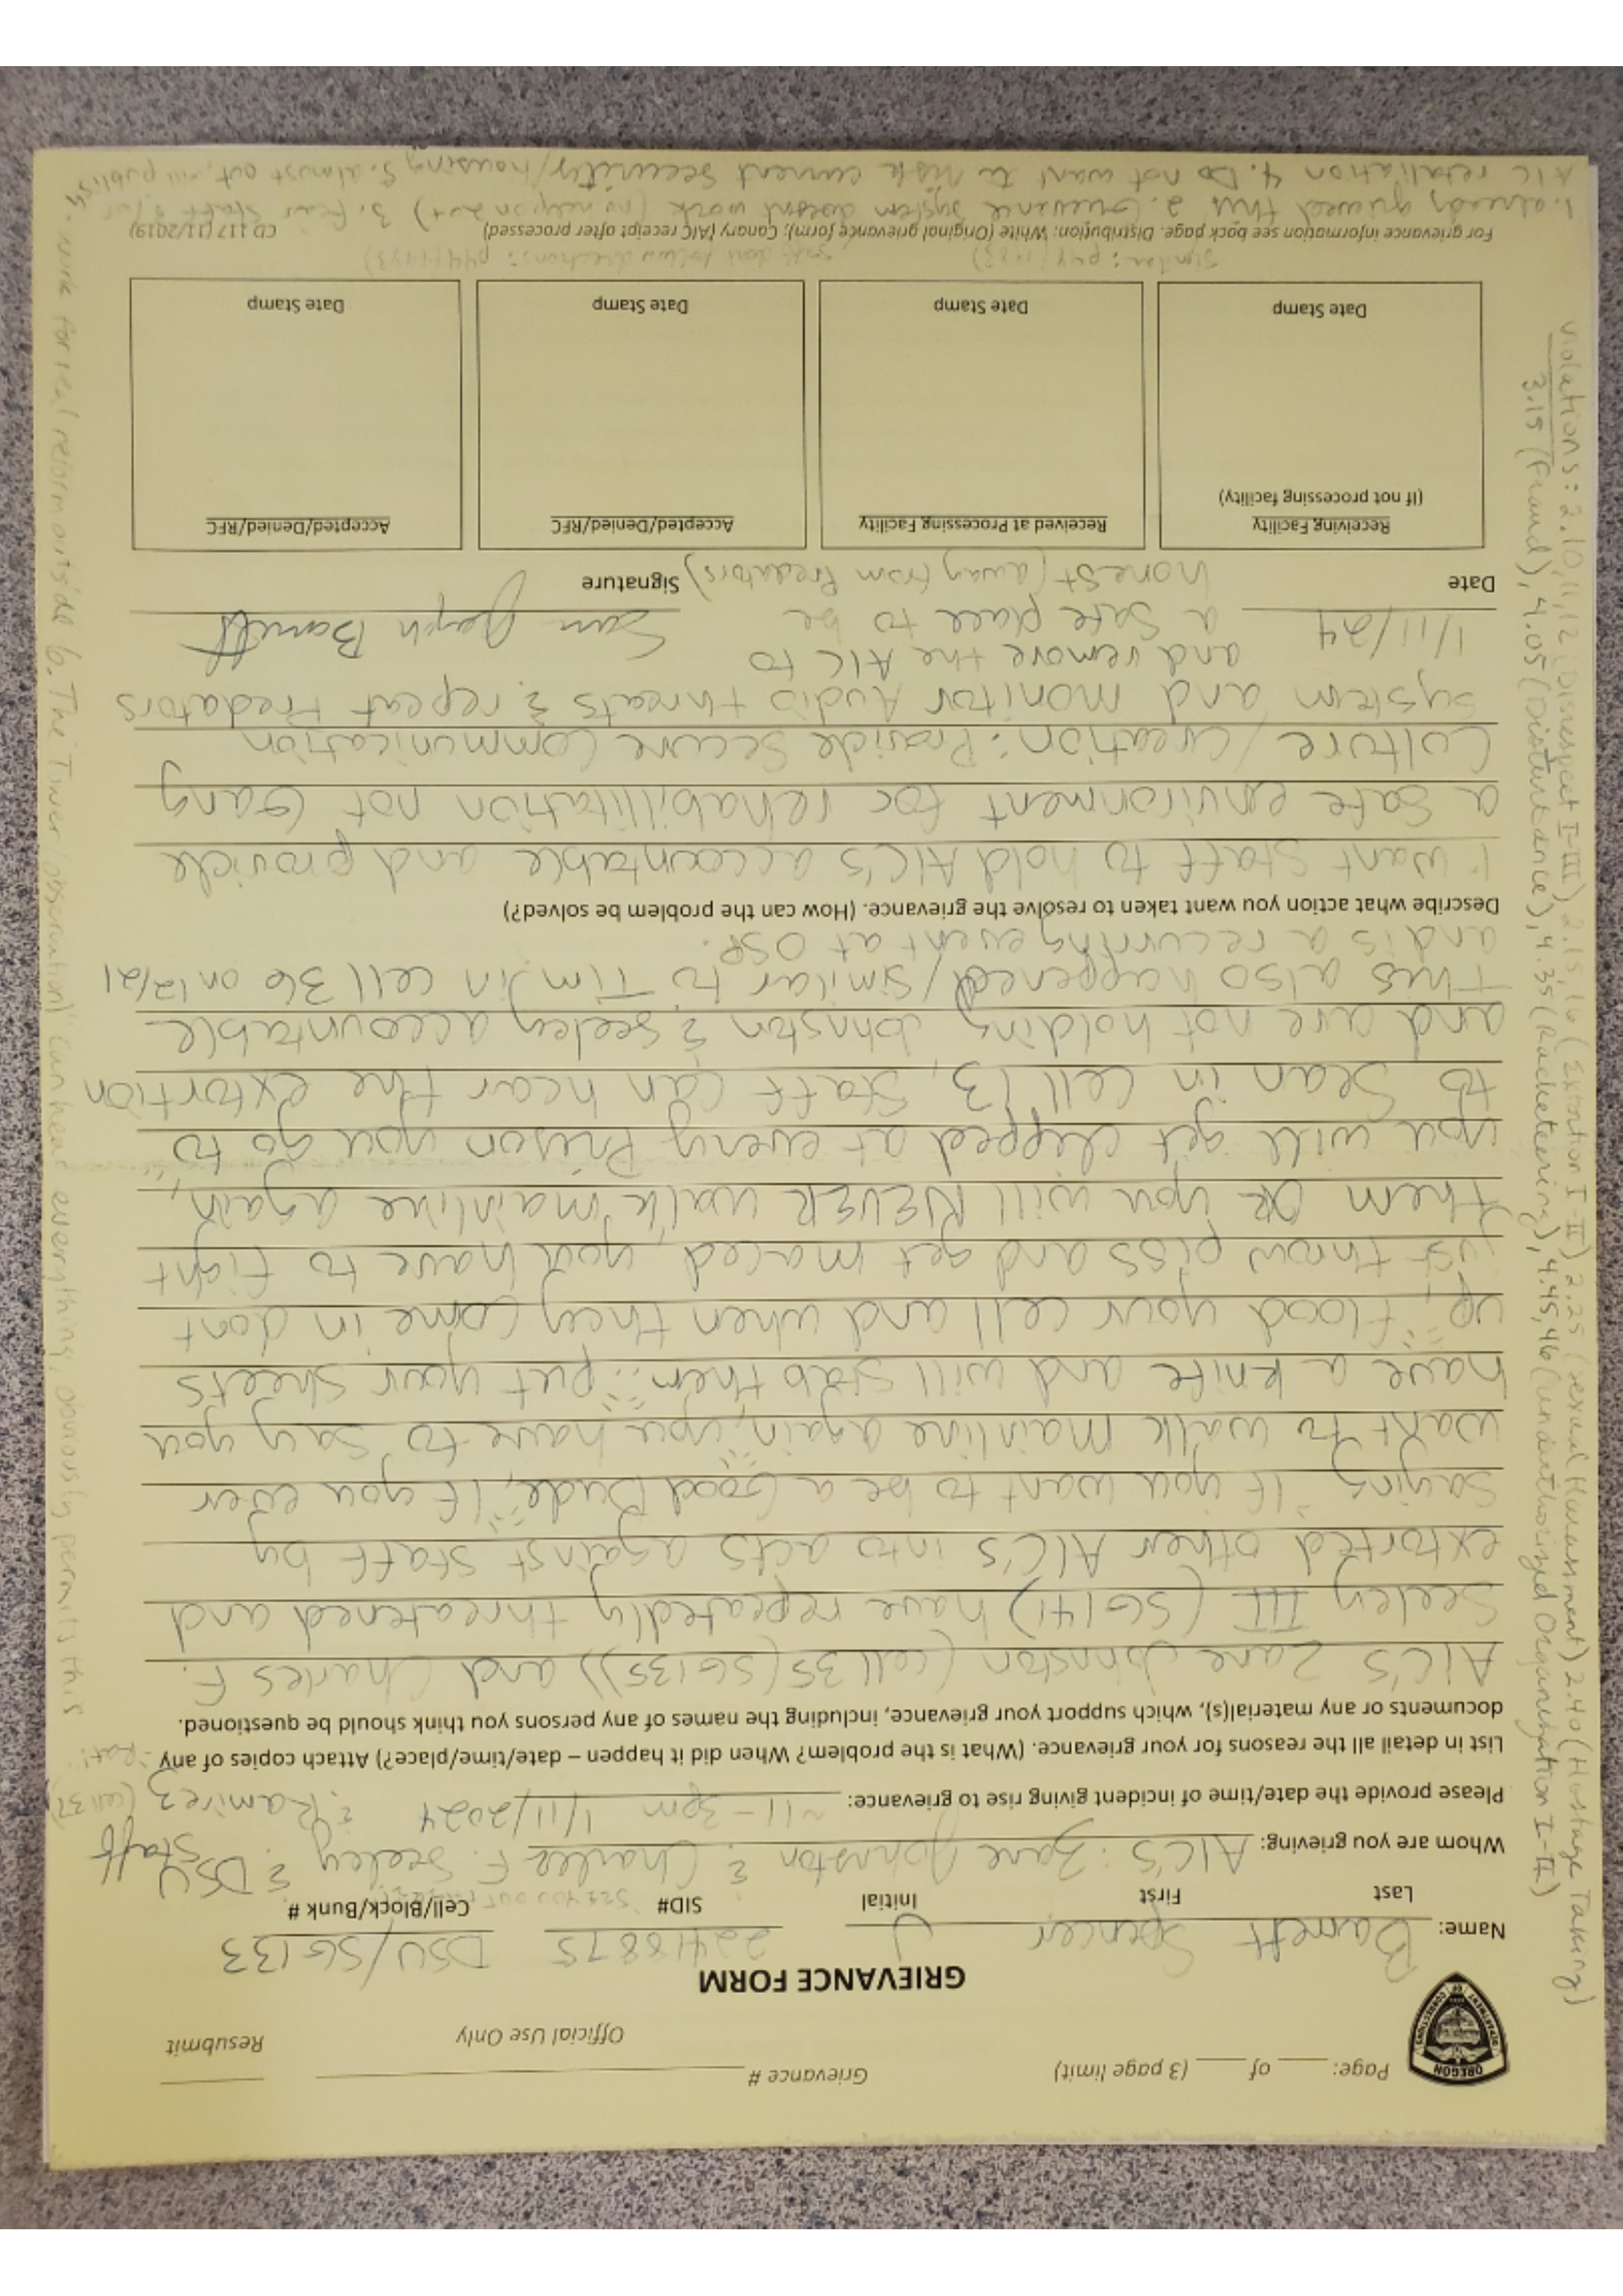 Page: ____ of ____ (3 page limit)
Grievance #
Official Use Only
Resubmit
OREGON
DEPARTMENT OF CORRECTIONS
GRIEVANCE FORM
Name: Barnett Spencer J 22418875 DSU/SG133
Last First Initial SID# Cell/Block/Bunk #
Whom are you grieving: AIC'S: Zane Johnston & Charles F. Seeley & DSU Staff
Please provide the date/time of incident giving rise to grievance: ~11-3pm 1/11/2024 & Ramirez (cell 37)
List in detail all the reasons for your grievance. (What is the problem? When did it happen – date/time/place?) Attach copies of any
documents or any material(s), which support your grievance, including the names of any persons you think should be questioned.
AIC'S Zane Johnston (cell 35 (SG135)) and Charles F.
Seeley III (SG141) have repeatedly threatened and
extorted other AIC'S into acts against staff by
saying "If you want to be a Good Dude," "If you ever
want to walk mainline again, you have to say you
have a knife and will stab them" "put your sheets
up," "flood your cell and when they come in dont
just throw piss and get maced, you have to fight
them OR you will NEVER walk mainline again,"
you will get clipped at every Prison you go to"
to Sean in cell 13, Staff can hear the extortion
and are not holding Johnston & Seeley accountable
This also happened/similar to Tim in cell 36 on 12/21
and is a recurring event at OSP.
Describe what action you want taken to resolve the grievance. (How can the problem be solved?)
I want Staff to hold AIC's accountable and provide
a safe environment for rehabilitation not Gang
Culture/Creation: Provide Secure Communication
System and monitor Audio threats & repeat Predators
and remove the AIC to
a safe place to be
honest (away from Predators)
1/11/24
Sean Joseph Barnett
Date Signature
Receiving Facility
(If not processing facility)
Date Stamp
Received at Processing Facility
Date Stamp
Accepted/Denied/RFC
Date Stamp
Accepted/Denied/RFC
Date Stamp
Similar: p44 (1183)
staff dont follow directions: p44
For grievance information see back page. Distribution: White (Original grievance form); Canary (AIC receipt after processed)
CD 117 (11/2019)
1. already grieved this 2. Grievance system doesnt work (no help on 2nd) 3. fear staff & for
AIC retaliation 4. Do not want to risk current security/housing 5. almost out, will publish
& work for real reform outside 6. The Tower (observation) can hear everything, obviously permits this
Violations: 2.10,11,12 (Disrespect I-III) 2.15,16 (Extortion I-II) 2.25 (Sexual Harassment) 2.40 (Hostage Taking)
3.15 (Fraud), 4.05 (Disturbance), 4.35 (Racketeering), 4.45,46 (Unauthorized Organization I-II)